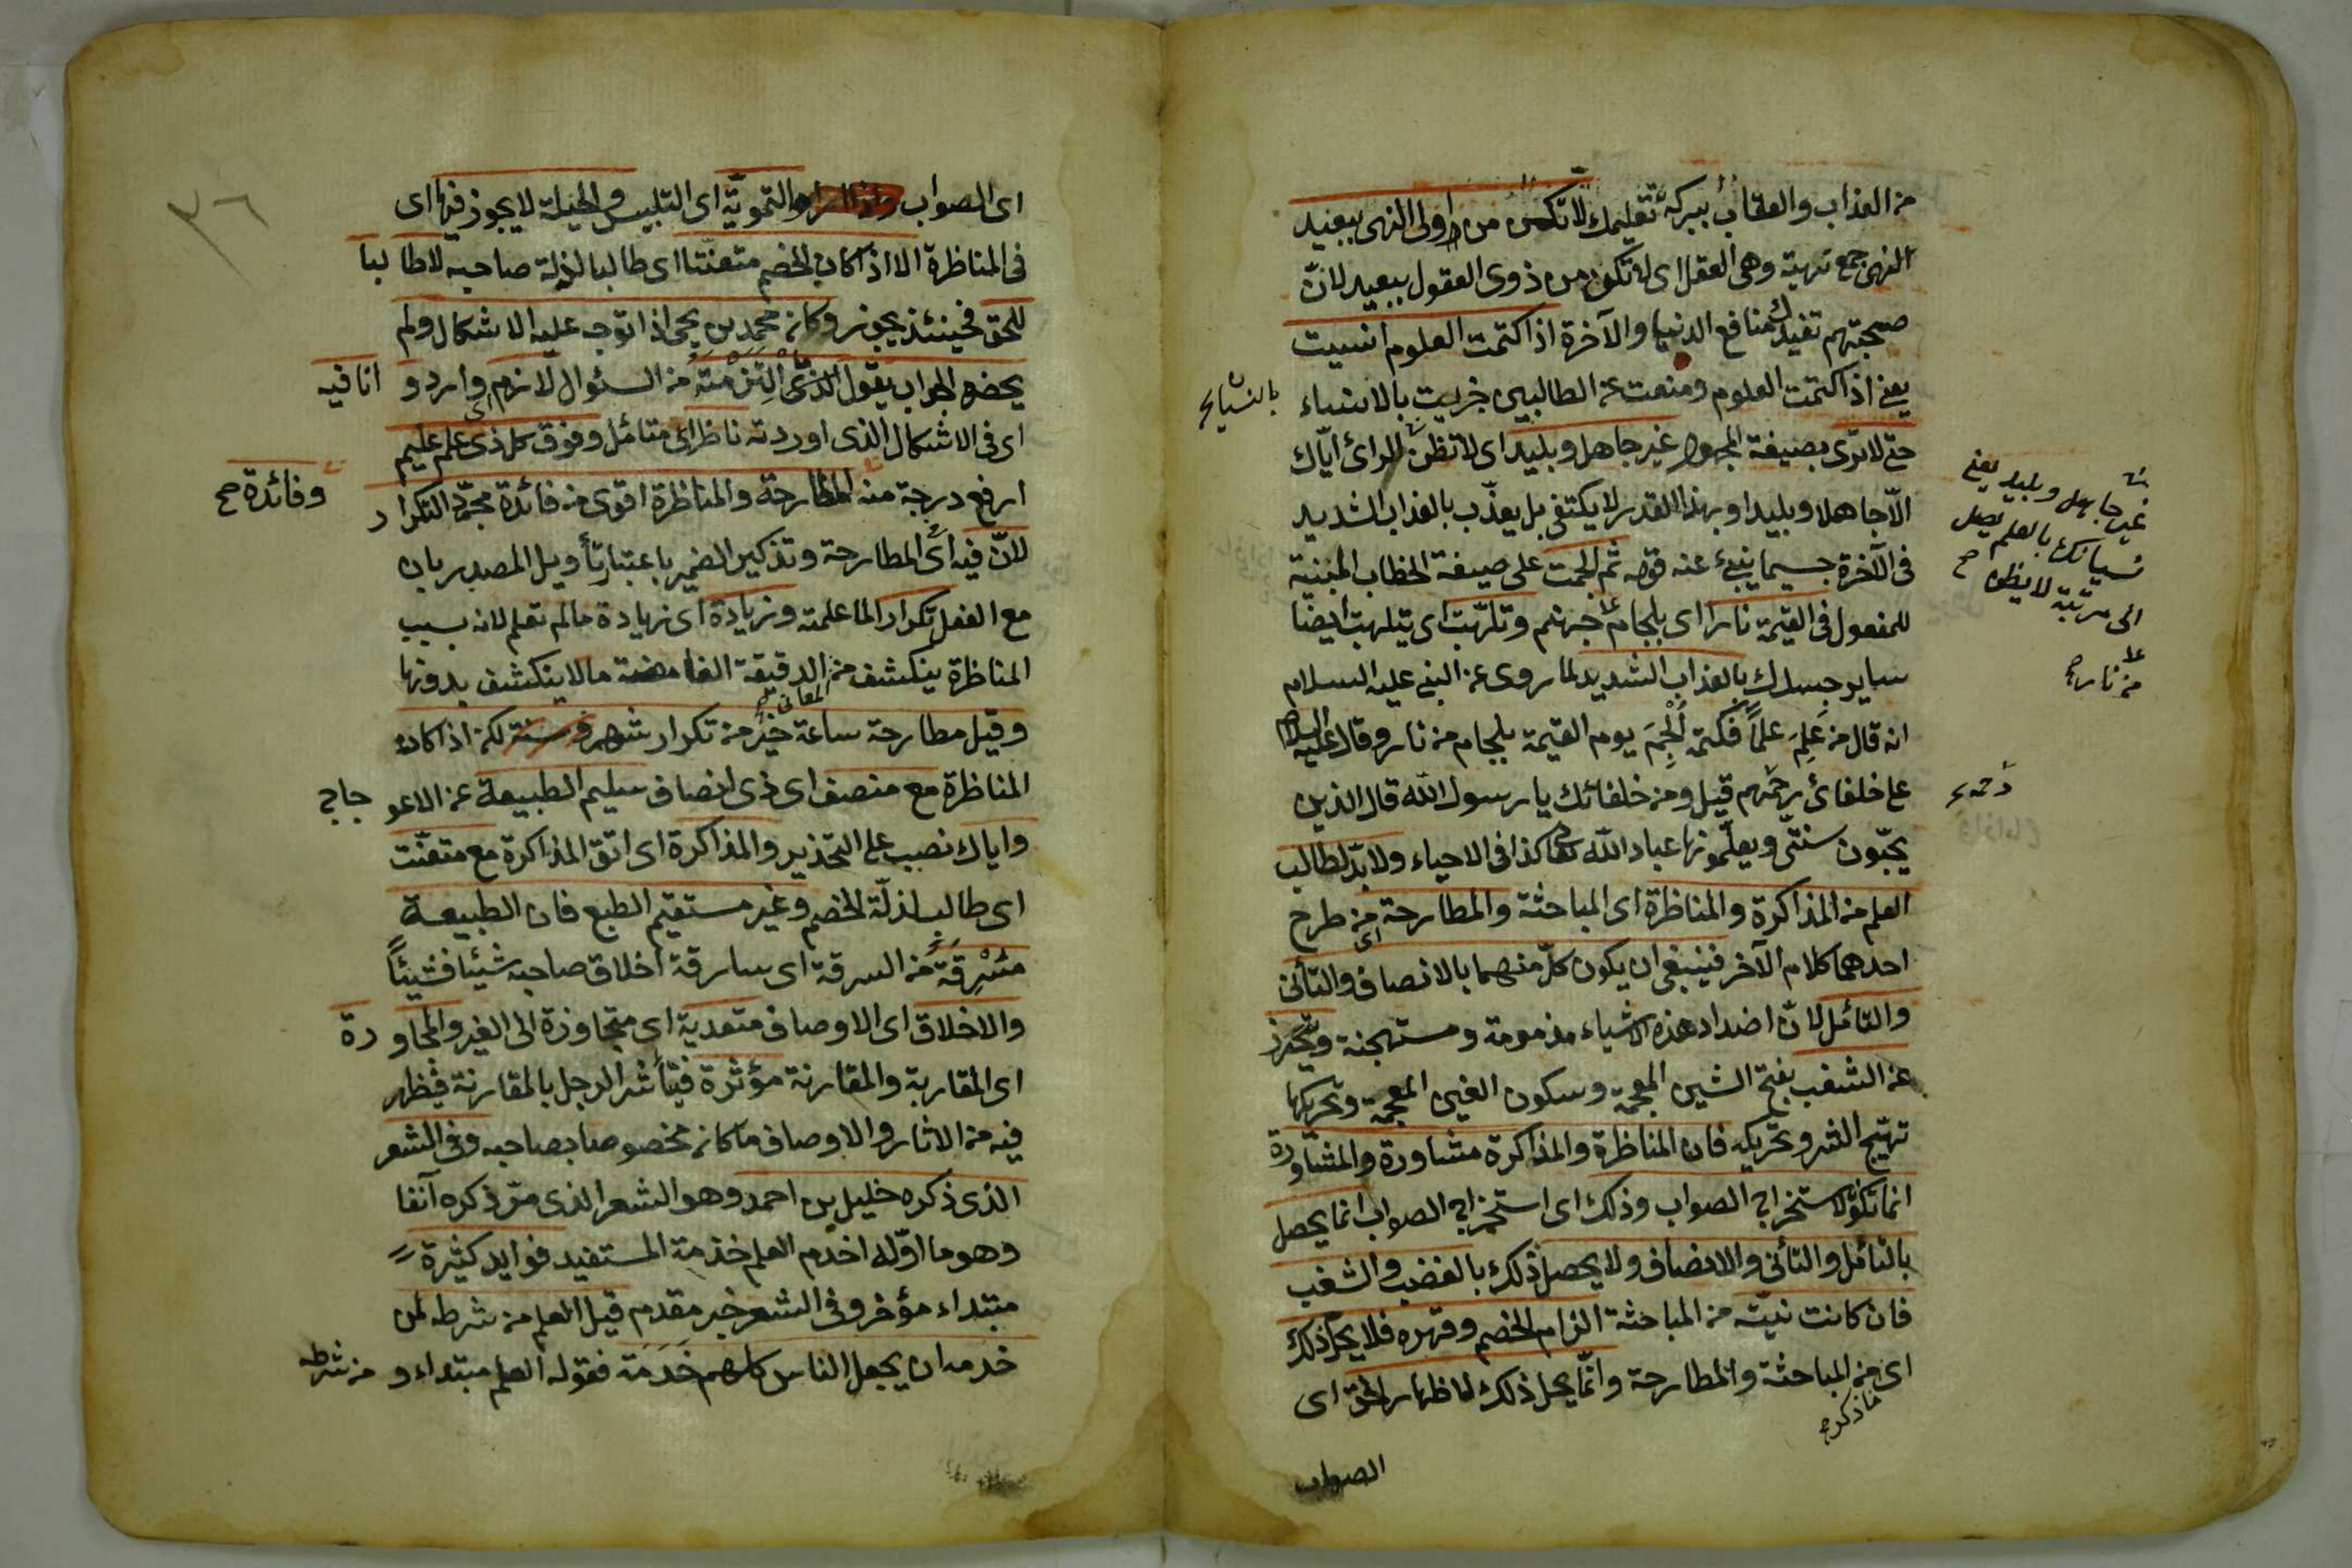 من العذاب والعقاب ببركة تعليمك لا تكن من اولى النهى ببعيد
النهى جمع نهية وهى العقل اى لا تكن من ذوى العقول ببعيد لانّ
صحبتهم تفيدك منافع الدنيا والآخرة اذا كتمت العلوم انسيت
يعنى اذا كتمت العلوم ومنعت عن الطالبين جزيت بالانساء
حتى لا ترى بصيغة المجهول غير جاهل وبليد اى لا تظن الرائ ايّاك
الّا جاهلا وبليدا وبهذا القدر لا يكتفى بل يعذّب بالعذاب الشديد
فى الآخرة حسبما ينبئ عنه قوله ثم الجمت على صيغة الخطاب المبنية
للمفعول فى القيمة نارا اى بلجام جهنم وتلهّبت اى يتلهب ايضا
ساير جسدك بالعذاب الشديد لما روى عن النبى عليه السلام
انه قال من عَلِمَ علمًا فكتمه اُلْجِمَ يوم القيمة بلجام من نار وقال عليه السلام
على خلفائ رحمهم قيل ومن خلفائك يا رسول الله قال الذين
يحبّون سنتى ويعلّمونها عباد الله كذا فى الاحياء ولا بدّ لطالب
العلم من المذاكرة والمناظرة اى المباحثة والمطارحة من طرح
احدهما كلام الآخر فينبغى ان يكون كلّ منهما بالانصاف والتأنى
والتأمّل لانّ اضداد هذه الاشياء مذمومة ومستهجنة ويتحرّز
عن الشغب بفتح الشين المعجمة وسكون الغين المعجمة وتحريكها
تهيّج الشر وتحريكه فان المناظرة والمذاكرة مشاورة والمشاورة
انما تكون لاستخراج الصواب وذلك اى استخراج الصواب انما يحصل
بالتأمّل والتأنى والانصاف ولا يحصل ذلك بالغضب والشغب
فان كانت نيّته من المباحثة الزام الخصم وقهره فلا يحلّ ذلك
اى من المباحثة والمطارحة وانّما يحل ذلك لاظهار الحق اى
الصواب
غير جاهل وبليد يعنى
نسيانك بالعلم تصل
الى مرتبة لا يظن صح
من نار
ما ذكر
٣٦
اى الصواب والتمويّه اى التلبيس والحيلة لا يجوز فيها اى
فى المناظرة الا اذا كان الخصم متعنّتا اى طالبا لذلة صاحبه لا طالبا
للحق فحينئذ يجوز وكان محمد بن يحيى اذا توجه عليه الاشكال ولم
يحضره الجواب يقول الذى التزمته من السئوال لازم وارد وانا فيه
اى فى الاشكال الذى اوردته ناظر اى متأمّل وفوق كل ذى علم عليم
ارفع درجة منه المطارحة والمناظرة اقوى من فائدة مجرّد التكرار
وفائدة صح
لانّ فيه اى المطارحة وتذكير الضمير باعتبار تأويل المصدر بان
مع الفعل تكرارا لما علمته وزيادة اى زيادة ما لم تعلم لانه بسبب
المناظرة ينكشف من الدقيقة الغامضة ما لا ينكشف بدونها
المعانى
وقيل مطارحة ساعة خير من تكرار شهر لكن اذا كان
المناظرة مع منصف اى ذى انصاف سليم الطبيعة عن الاعوجاج
واياك نصب على التحذير والمذاكرة اى اتق المذاكرة مع متعنّت
اى طالب لذلّة الخصم وغير مستقيم الطبع فان الطبيعة
مسْرِقَةٌ من السرقة اى سارقة اخلاق صاحبه شيئا فشيئًا
والاخلاق اى الاوصاف متعدية اى متجاوزة الى الغير والمجاورة
اى المقاربة والمقارنة مؤثرة فيتأثر الرجل بالمقارنة فيظهر
فيه من الاثار والاوصاف ما كان مخصوصا بصاحبه وفى الشعر
الذى ذكره خليل بن احمد وهو الشعر الذى مرّ ذكره آنفا
وهو ما اوّله اخدم العلم خدمة المستفيد فوايد كثيرة
مبتداء مؤخر وفى الشعر خبر مقدم قيل العلم من شرطه لمن
خدمه ان يجعل الناس كلهم خَدَمَهُ فقوله العلم مبتداء ومن شرطه